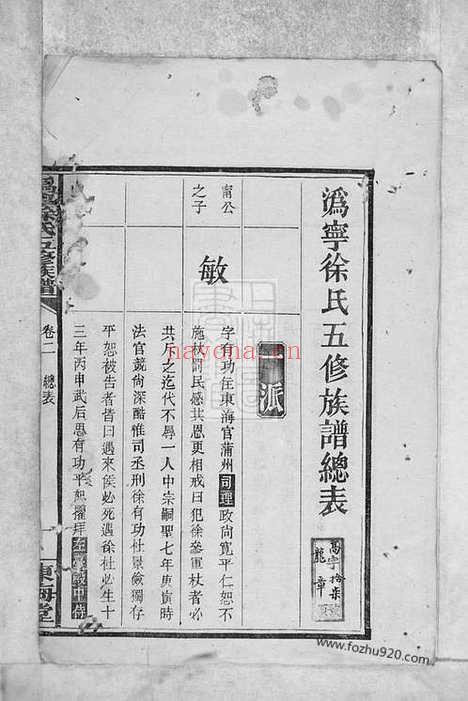 溈寧徐氏五修族譜總表
派
甯公
之子
敏
字有功住東海官蒲州司理政尚寬平仁恕不
施杖罰民感其恩更相戒曰犯徐參軍杖者必
共斥之迄代不辱一人中宗嗣聖七年庚寅時
法官競尚深酷惟司丞刑徐有功杜景儉獨存
平恕被告者皆曰遇來侯必死遇徐杜必生十
三年丙申武后思有功平恕擢拜左臺殿中侍
五修族譜
卷二 總表
東海堂
nayona.cn
www.fozhu920.com